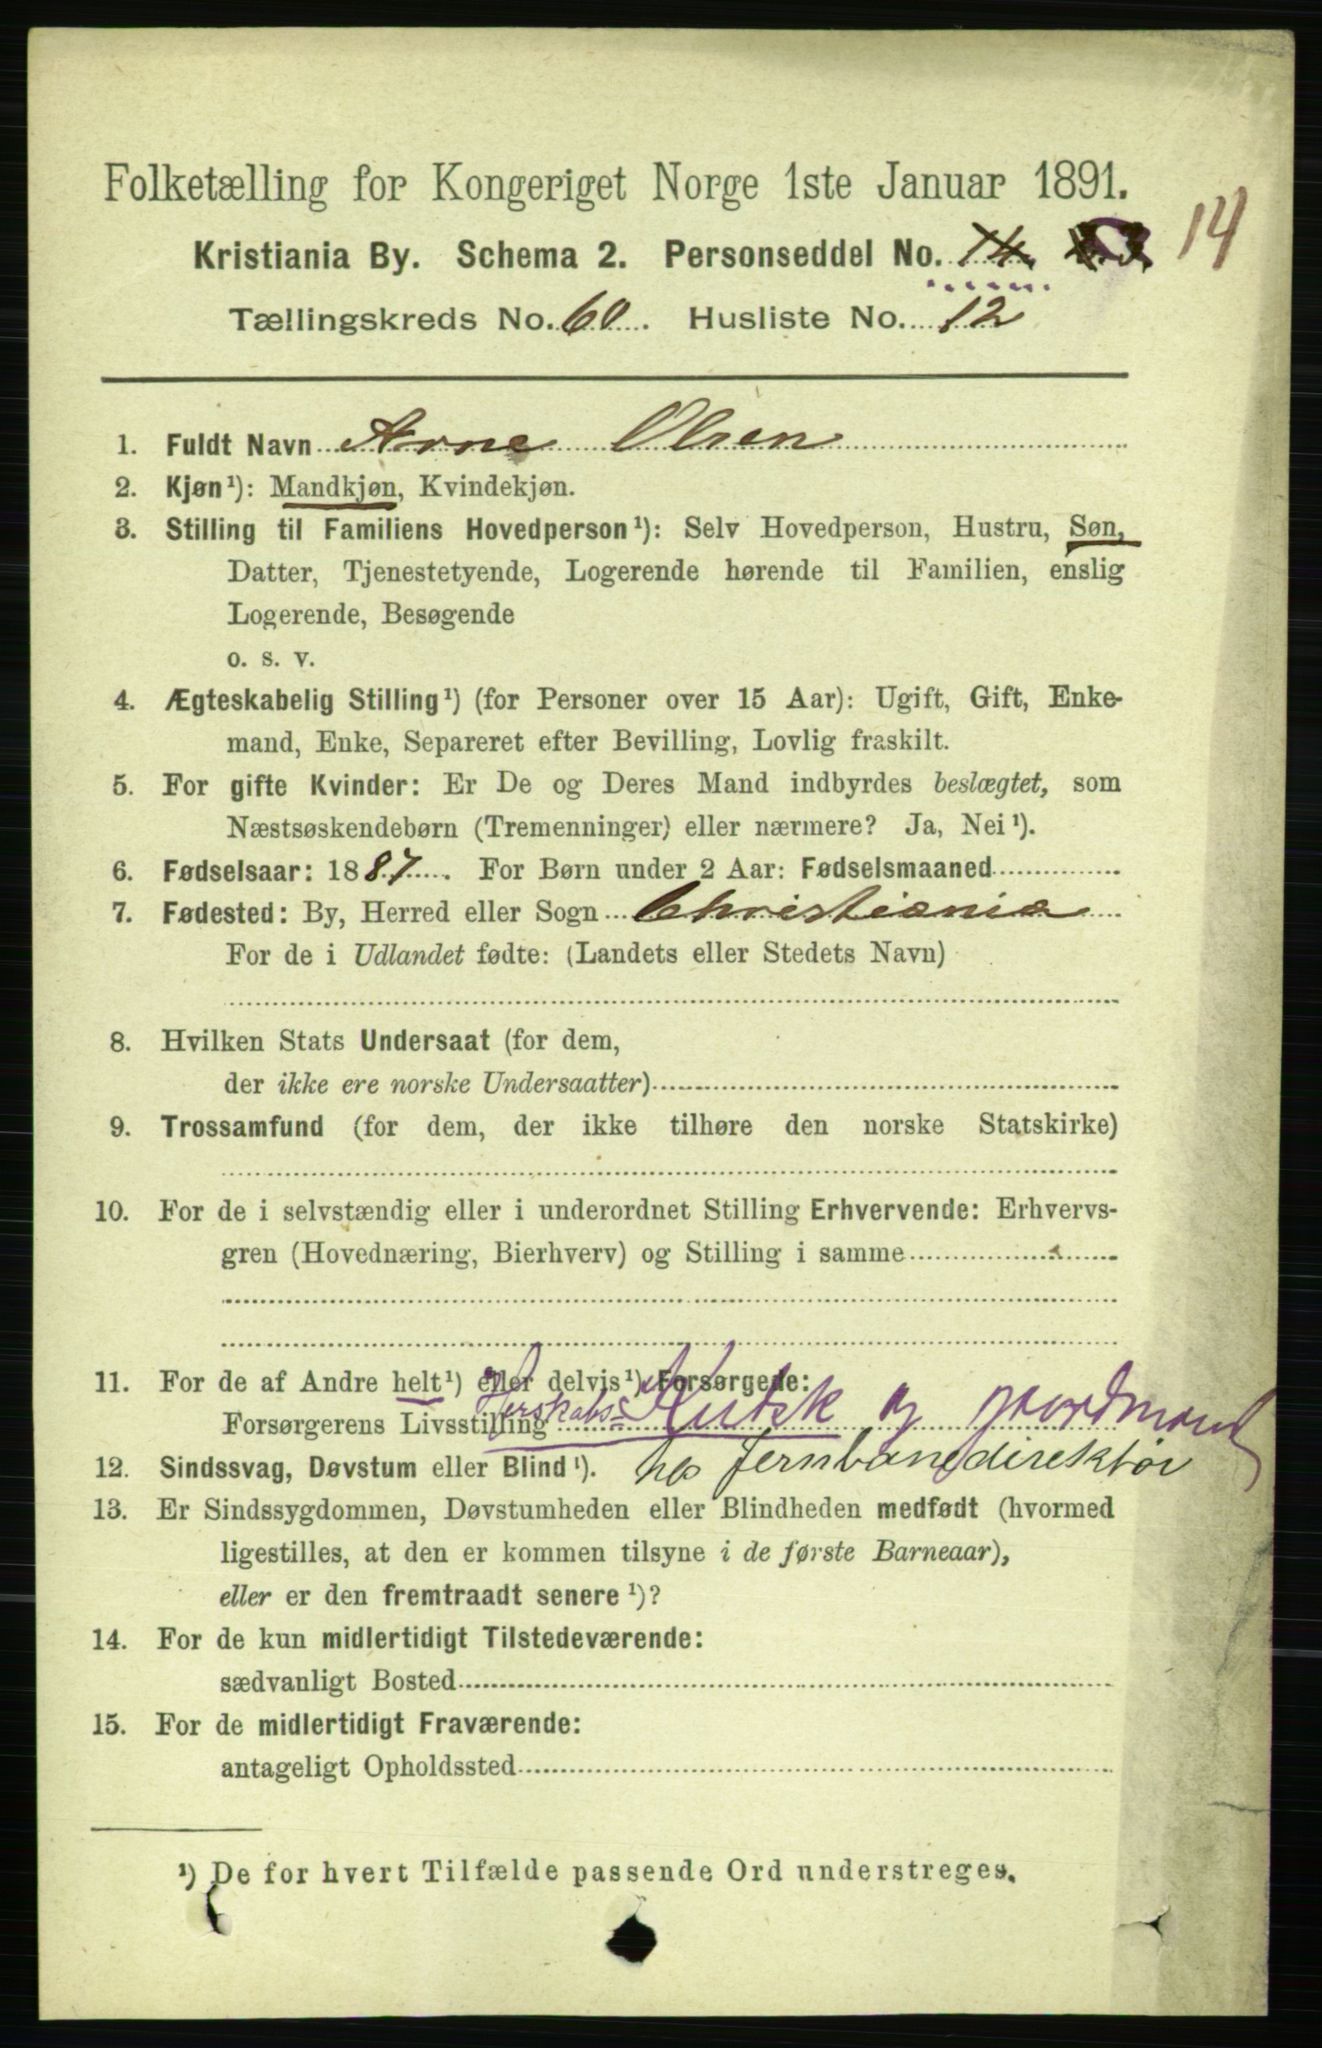 Folketælling for Kongeriget Norge 1ste Januar 1891.
Kristiania By. Schema 2. Personseddel No. 14. 14
Tællingskreds No. 60. Husliste No. 12
1. Fuldt Navn Arne Olsen
2. Kjøn¹): Mandkjøn, Kvindekjøn.
3. Stilling til Familiens Hovedperson¹): Selv Hovedperson, Hustru, Søn,
Datter, Tjenestetyende, Logerende hørende til Familien, enslig
Logerende, Besøgende
o. s. v.
4. Ægteskabelig Stilling¹) (for Personer over 15 Aar): Ugift, Gift, Enke-
mand, Enke, Separeret efter Bevilling, Lovlig fraskilt.
5. For gifte Kvinder: Er De og Deres Mand indbyrdes beslægtet, som
Næstsøskendebørn (Tremenninger) eller nærmere? Ja, Nei¹).
6. Fødselsaar: 1887. For Børn under 2 Aar: Fødselsmaaned
7. Fødested: By, Herred eller Sogn Christiania
For de i Udlandet fødte: (Landets eller Stedets Navn)
8. Hvilken Stats Undersaat (for dem,
der ikke ere norske Undersaatter)
9. Trossamfund (for dem, der ikke tilhøre den norske Statskirke)
10. For de i selvstændig eller i underordnet Stilling Erhvervende: Erhvervs-
gren (Hovednæring, Bierhverv) og Stilling i samme
11. For de af Andre helt¹) eller delvis¹) Forsørgede:
Forsørgerens Livsstilling Herskabs= Kutsk og gaardmand
12. Sindssvag, Døvstum eller Blind¹). hos Jernbanedirektør
13. Er Sindssygdommen, Døvstumheden eller Blindheden medfødt (hvormed
ligestilles, at den er kommen tilsyne i de første Barneaar),
eller er den fremtraadt senere¹)?
14. For de kun midlertidigt Tilstedeværende:
sædvanligt Bosted
15. For de midlertidigt Fraværende:
antageligt Opholdssted
¹) De for hvert Tilfælde passende Ord understreges.